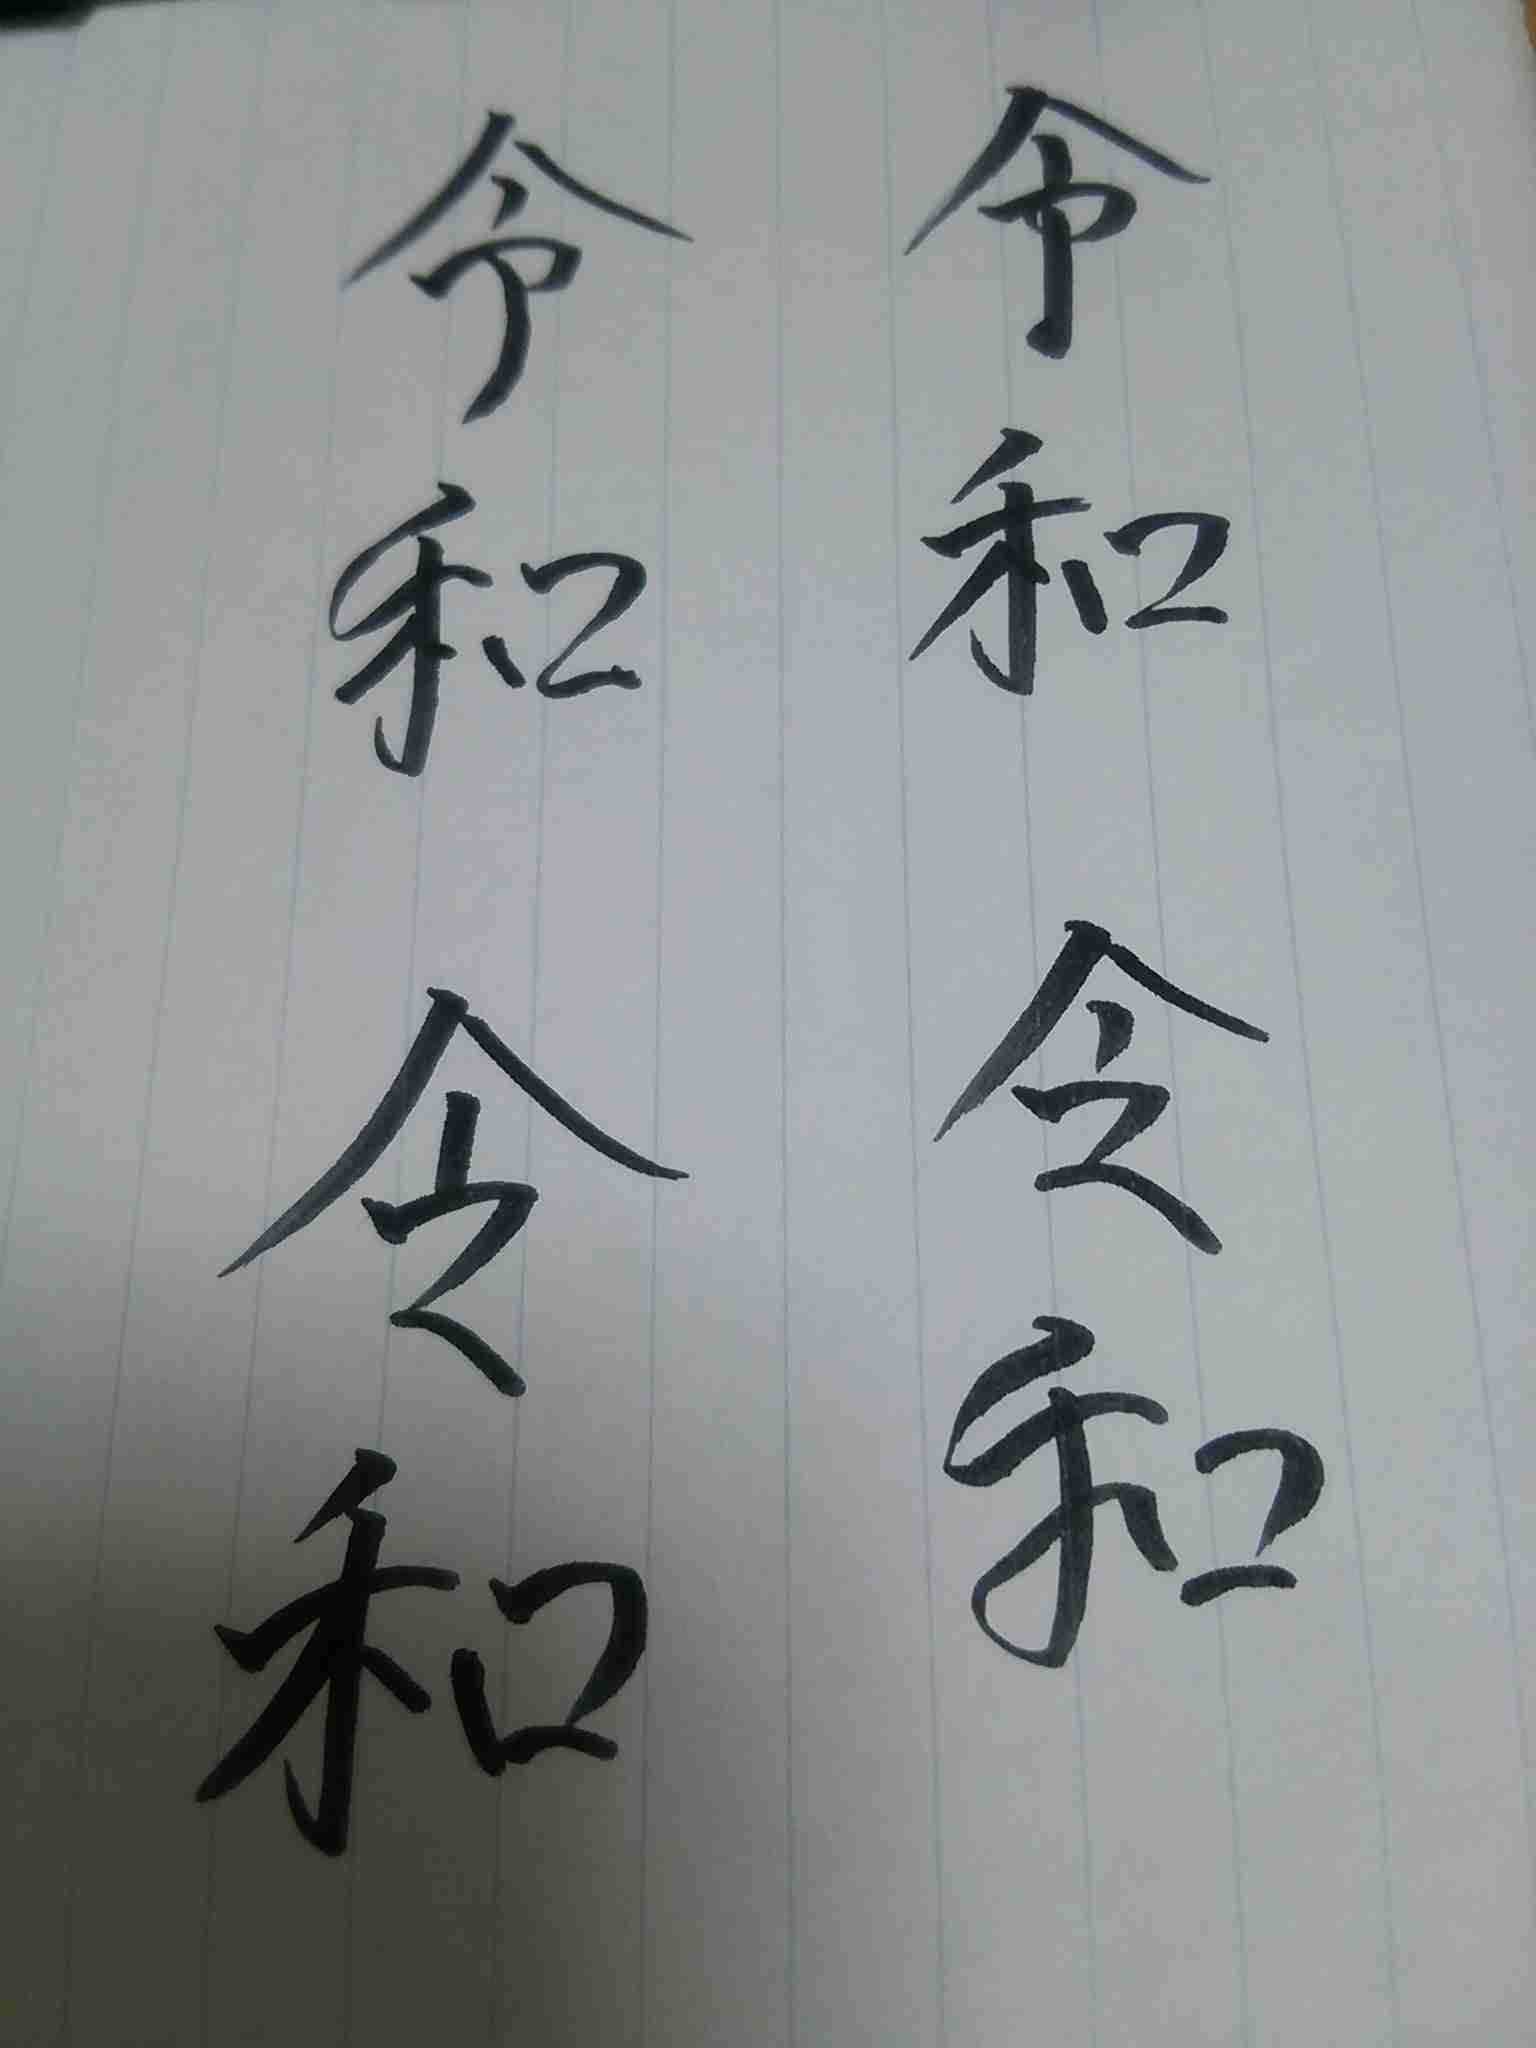 令和
令和
令和
令和